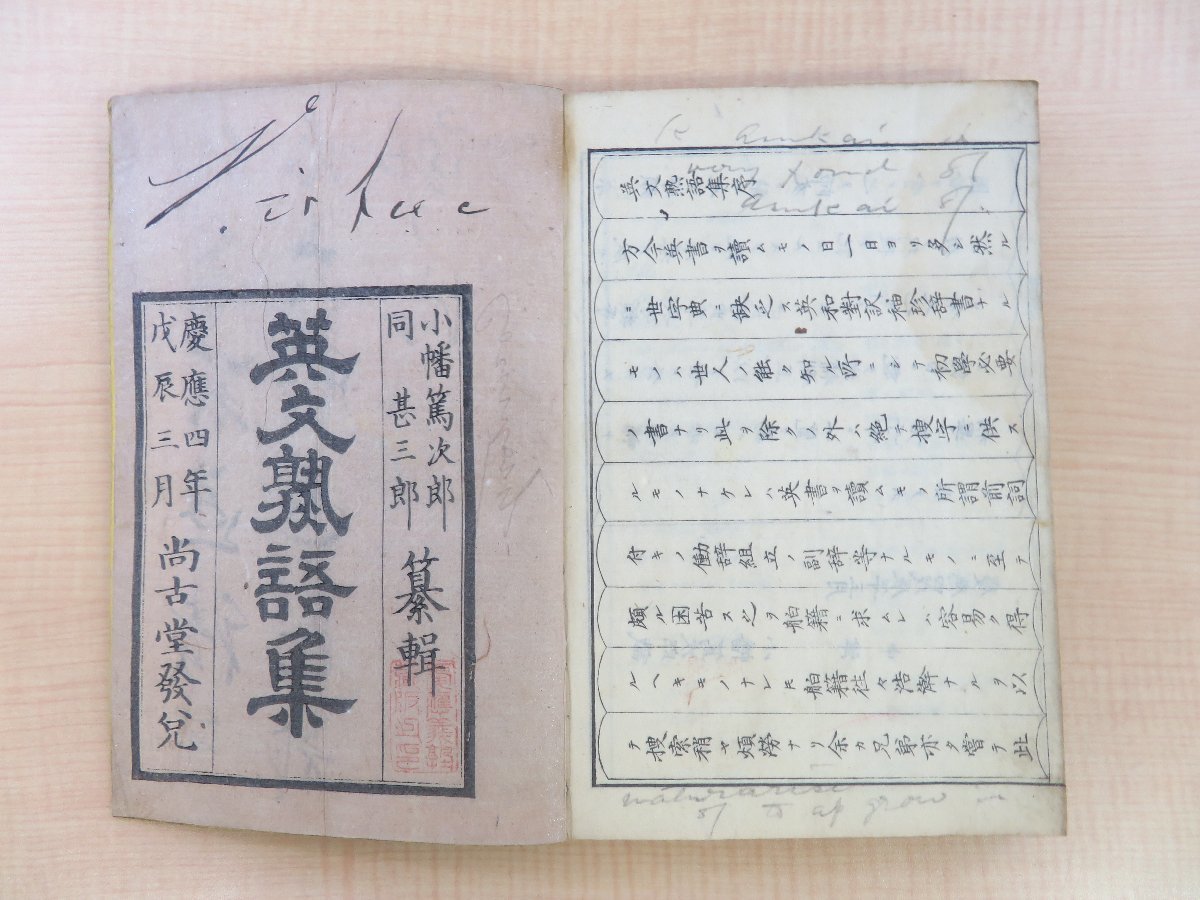 小幡篤次郎
同 甚三郎 纂輯
英文熟語集
慶應四年
戊辰三月 尚古堂發兌
英文熟語集序
方今英書ヲ讀ムモノ日一日ヨリ多シ然ル
ニ世字典ニ缺乏ス英和對訳袖珍辞書ナル
モノハ世人ノ能ク知ル所ニシテ初學必要
ノ書ナリ此ヲ除クノ外ハ絶テ捜字ニ供ス
ルモノナケレハ英書ヲ讀ムモノ所謂前詞
付キノ働辞組立ノ副辞等ナルモノニ至テ
頗ル困苦ス之ヲ舶籍ニ求ムレハ容易ク得
ルヘキモノナレ𪜈舶籍往々浩澣ナルヲ以
テ捜索稍ヤ煩勞ナリ余カ兄弟亦タ嘗テ此